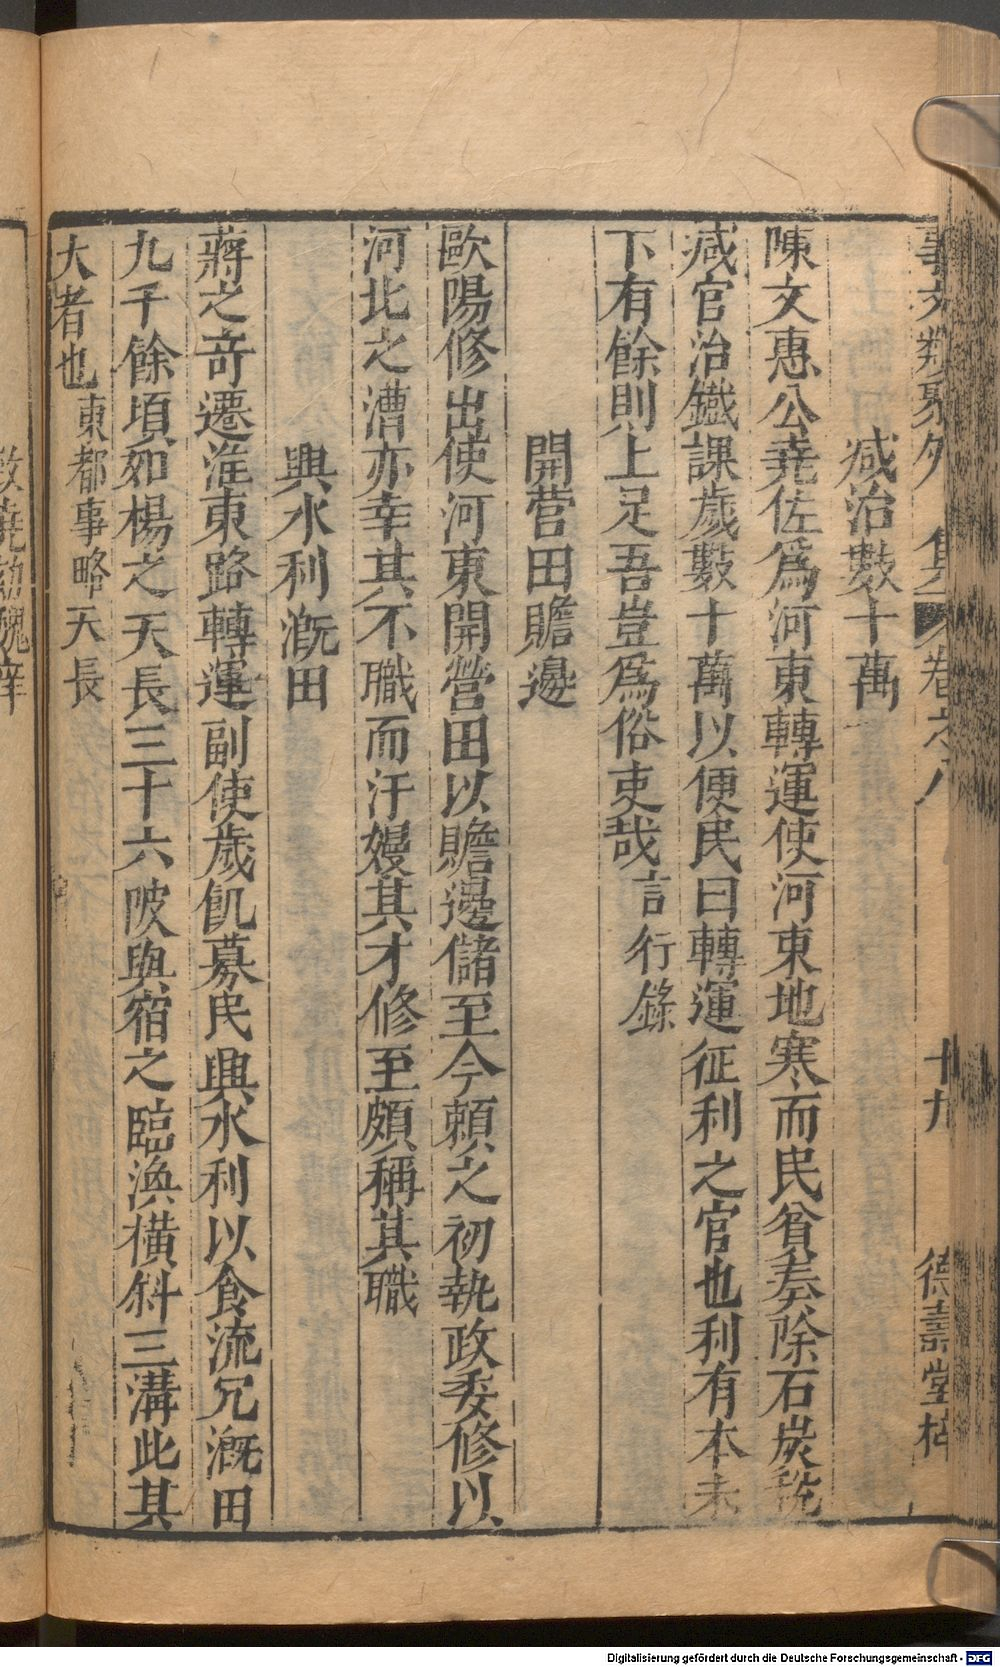 事文類聚外集 卷之八 十九 德壽堂梓
减治數十萬
陳文惠公堯佐爲河東轉運使河東地寒而民貧奏除石炭稅
减官治鐵課歲數十萬以便民曰轉運征利之官也利有本末
下有餘則上足吾豈爲俗吏哉言行錄
開營田贍邊
歐陽修出使河東開營田以贍邊儲至今賴之初執政委修以
河北之漕亦幸其不職而汙嫚其才修至頗稱其職
興水利漑田
蔣之奇遷淮東路轉運副使歲飢募民興水利以食流冗漑田
九千餘頃如楊之天長三十六陂與宿之臨渙橫斜三溝此其
大者也東都事略天長
Digitalisierung gefördert durch die Deutsche Forschungsgemeinschaft - DFG